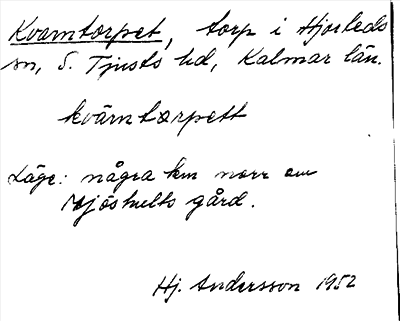 Kvarntorpet, torp i Hjorteds
sn, S. Tjusts hd, Kalmar län.
kvärntorpett
Läge: några km norr om
Mjöshults gård.
Hj. Andersson 1952